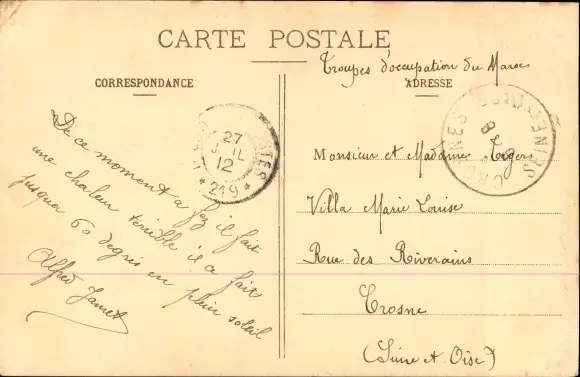 CARTE POSTALE
Troupes d'occupation du Maroc
CORRESPONDANCE
ADRESSE
De ce moment a fez il fait
une chaleur terrible il a fait
jusqua 60 degrés en plein soleil
Alfred Jamet
27
JUIL
12
* 219 *
Monsieur et Madame
Villa Marie Louise
Rue des Riverains
Crosne
(Seine et Oise)